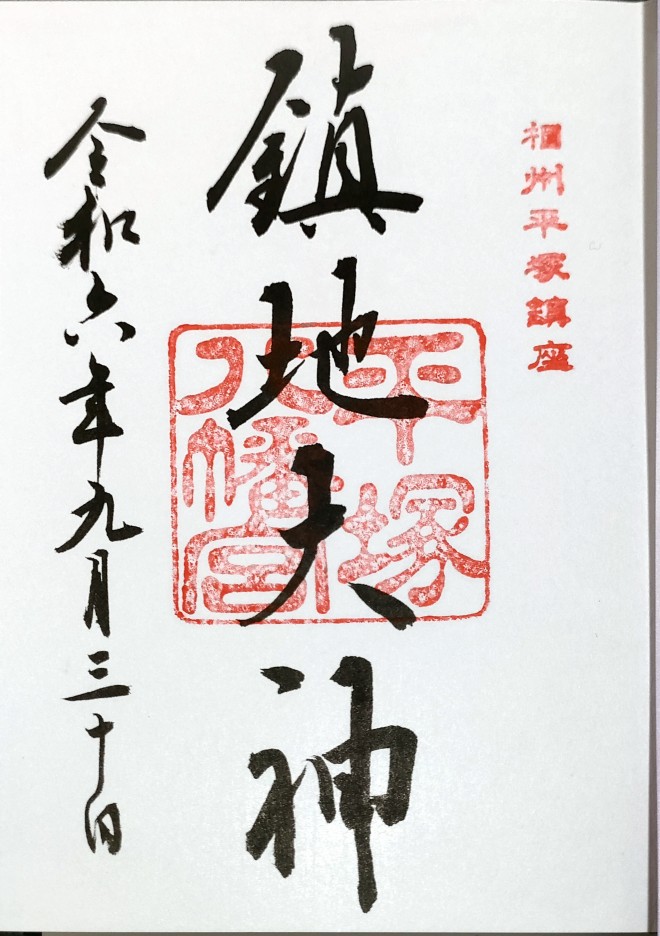 相州平塚鎮座
鎮地大神
平塚
八幡宮
令和六年九月三十日